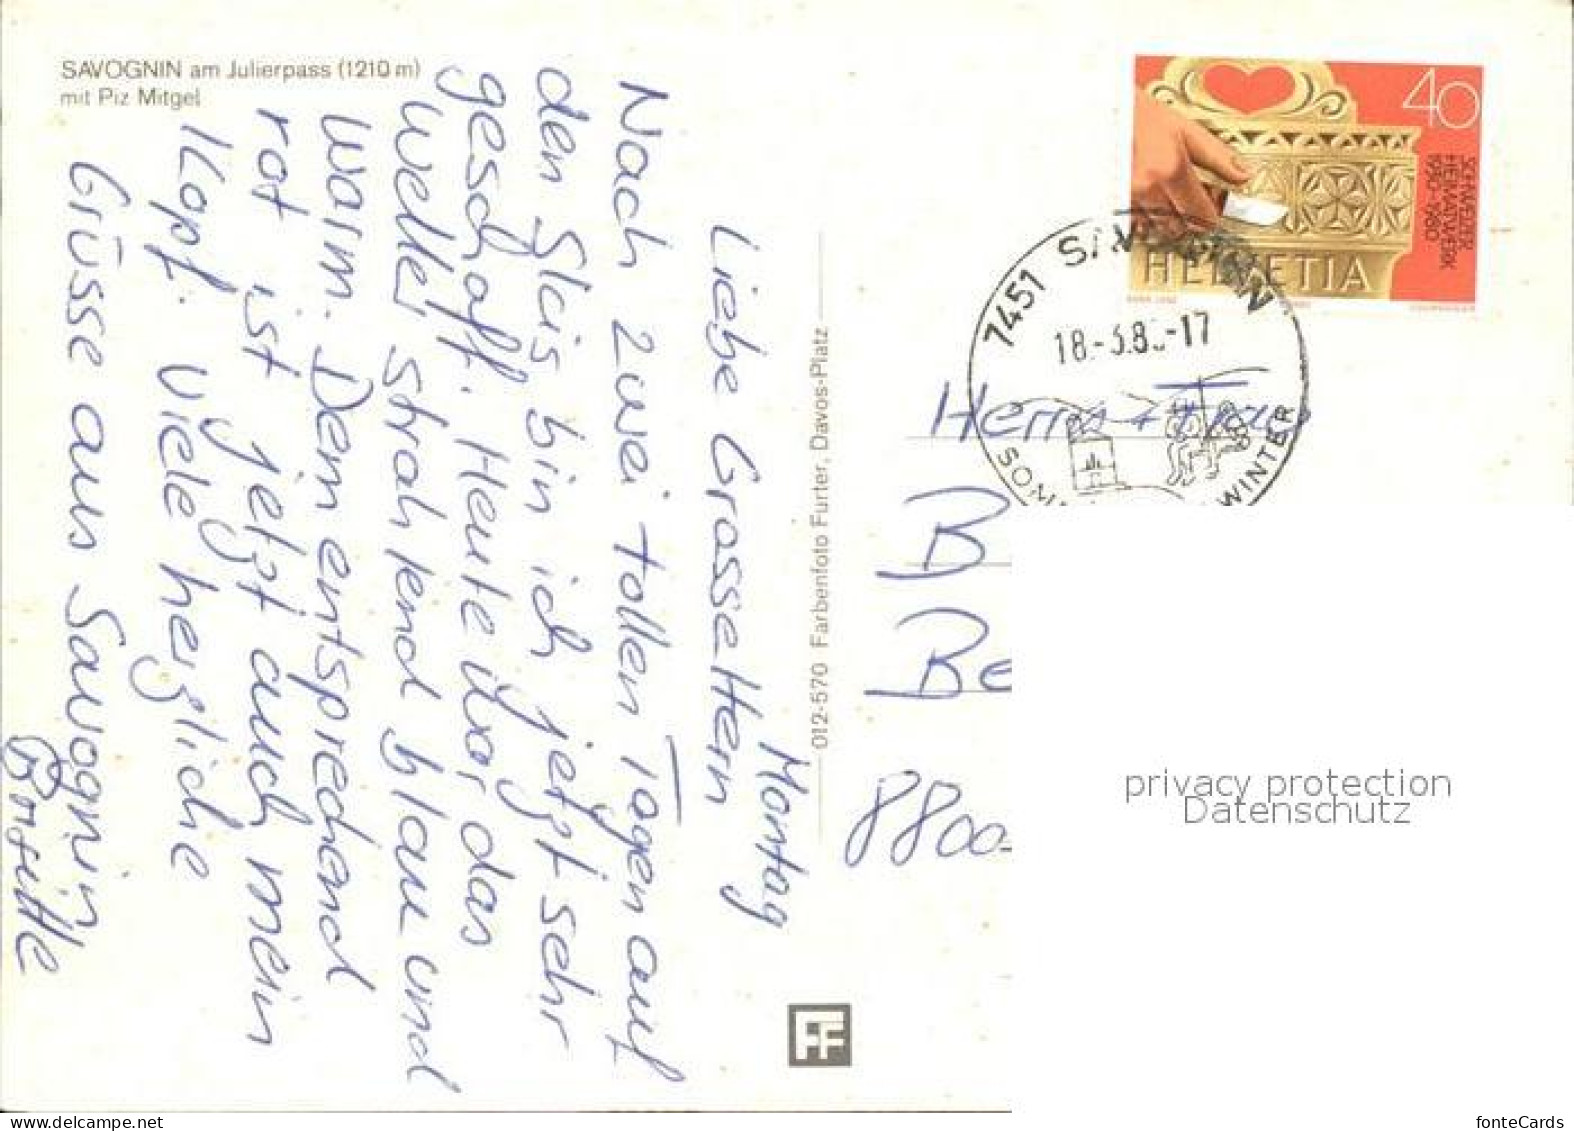 SAVOGNIN am Julierpass (1210 m)
mit Piz Mitgel
Montag
Liebe Grosseltern
Nach zwei tollen Tagen auf
den Skis bin ich jetzt sehr
geschafft. Heute war das
Wetter strahlend blau und
warm. Dem entsprechend
rot ist jetzt auch mein
Kopf. Viele herzliche
Grüsse aus Savognin
012-570 Farbenfoto Furter, Davos-Platz
FF
40
SCHWEIZER
HEIMATWERK
1930-1980
HELVETIA
7451 SAVOGNIN
18.-3.8 -17
SOMM WINTER
Herrn + Frau
B
Be
8800
privacy protection
Datenschutz
fonteCards